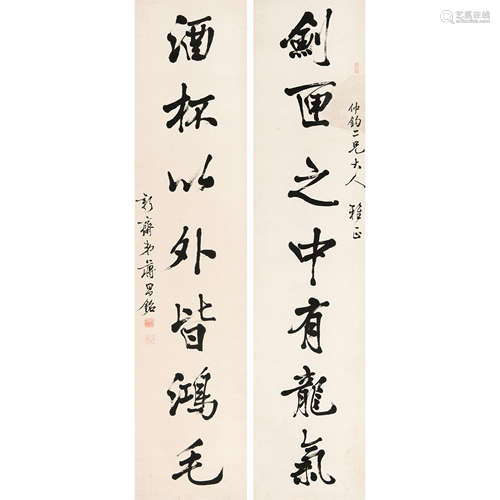 劍匣之中有龍氣
仲鈞二兄大人 雅正
酒杯以外皆鴻毛
彰齋弟薄昌銘